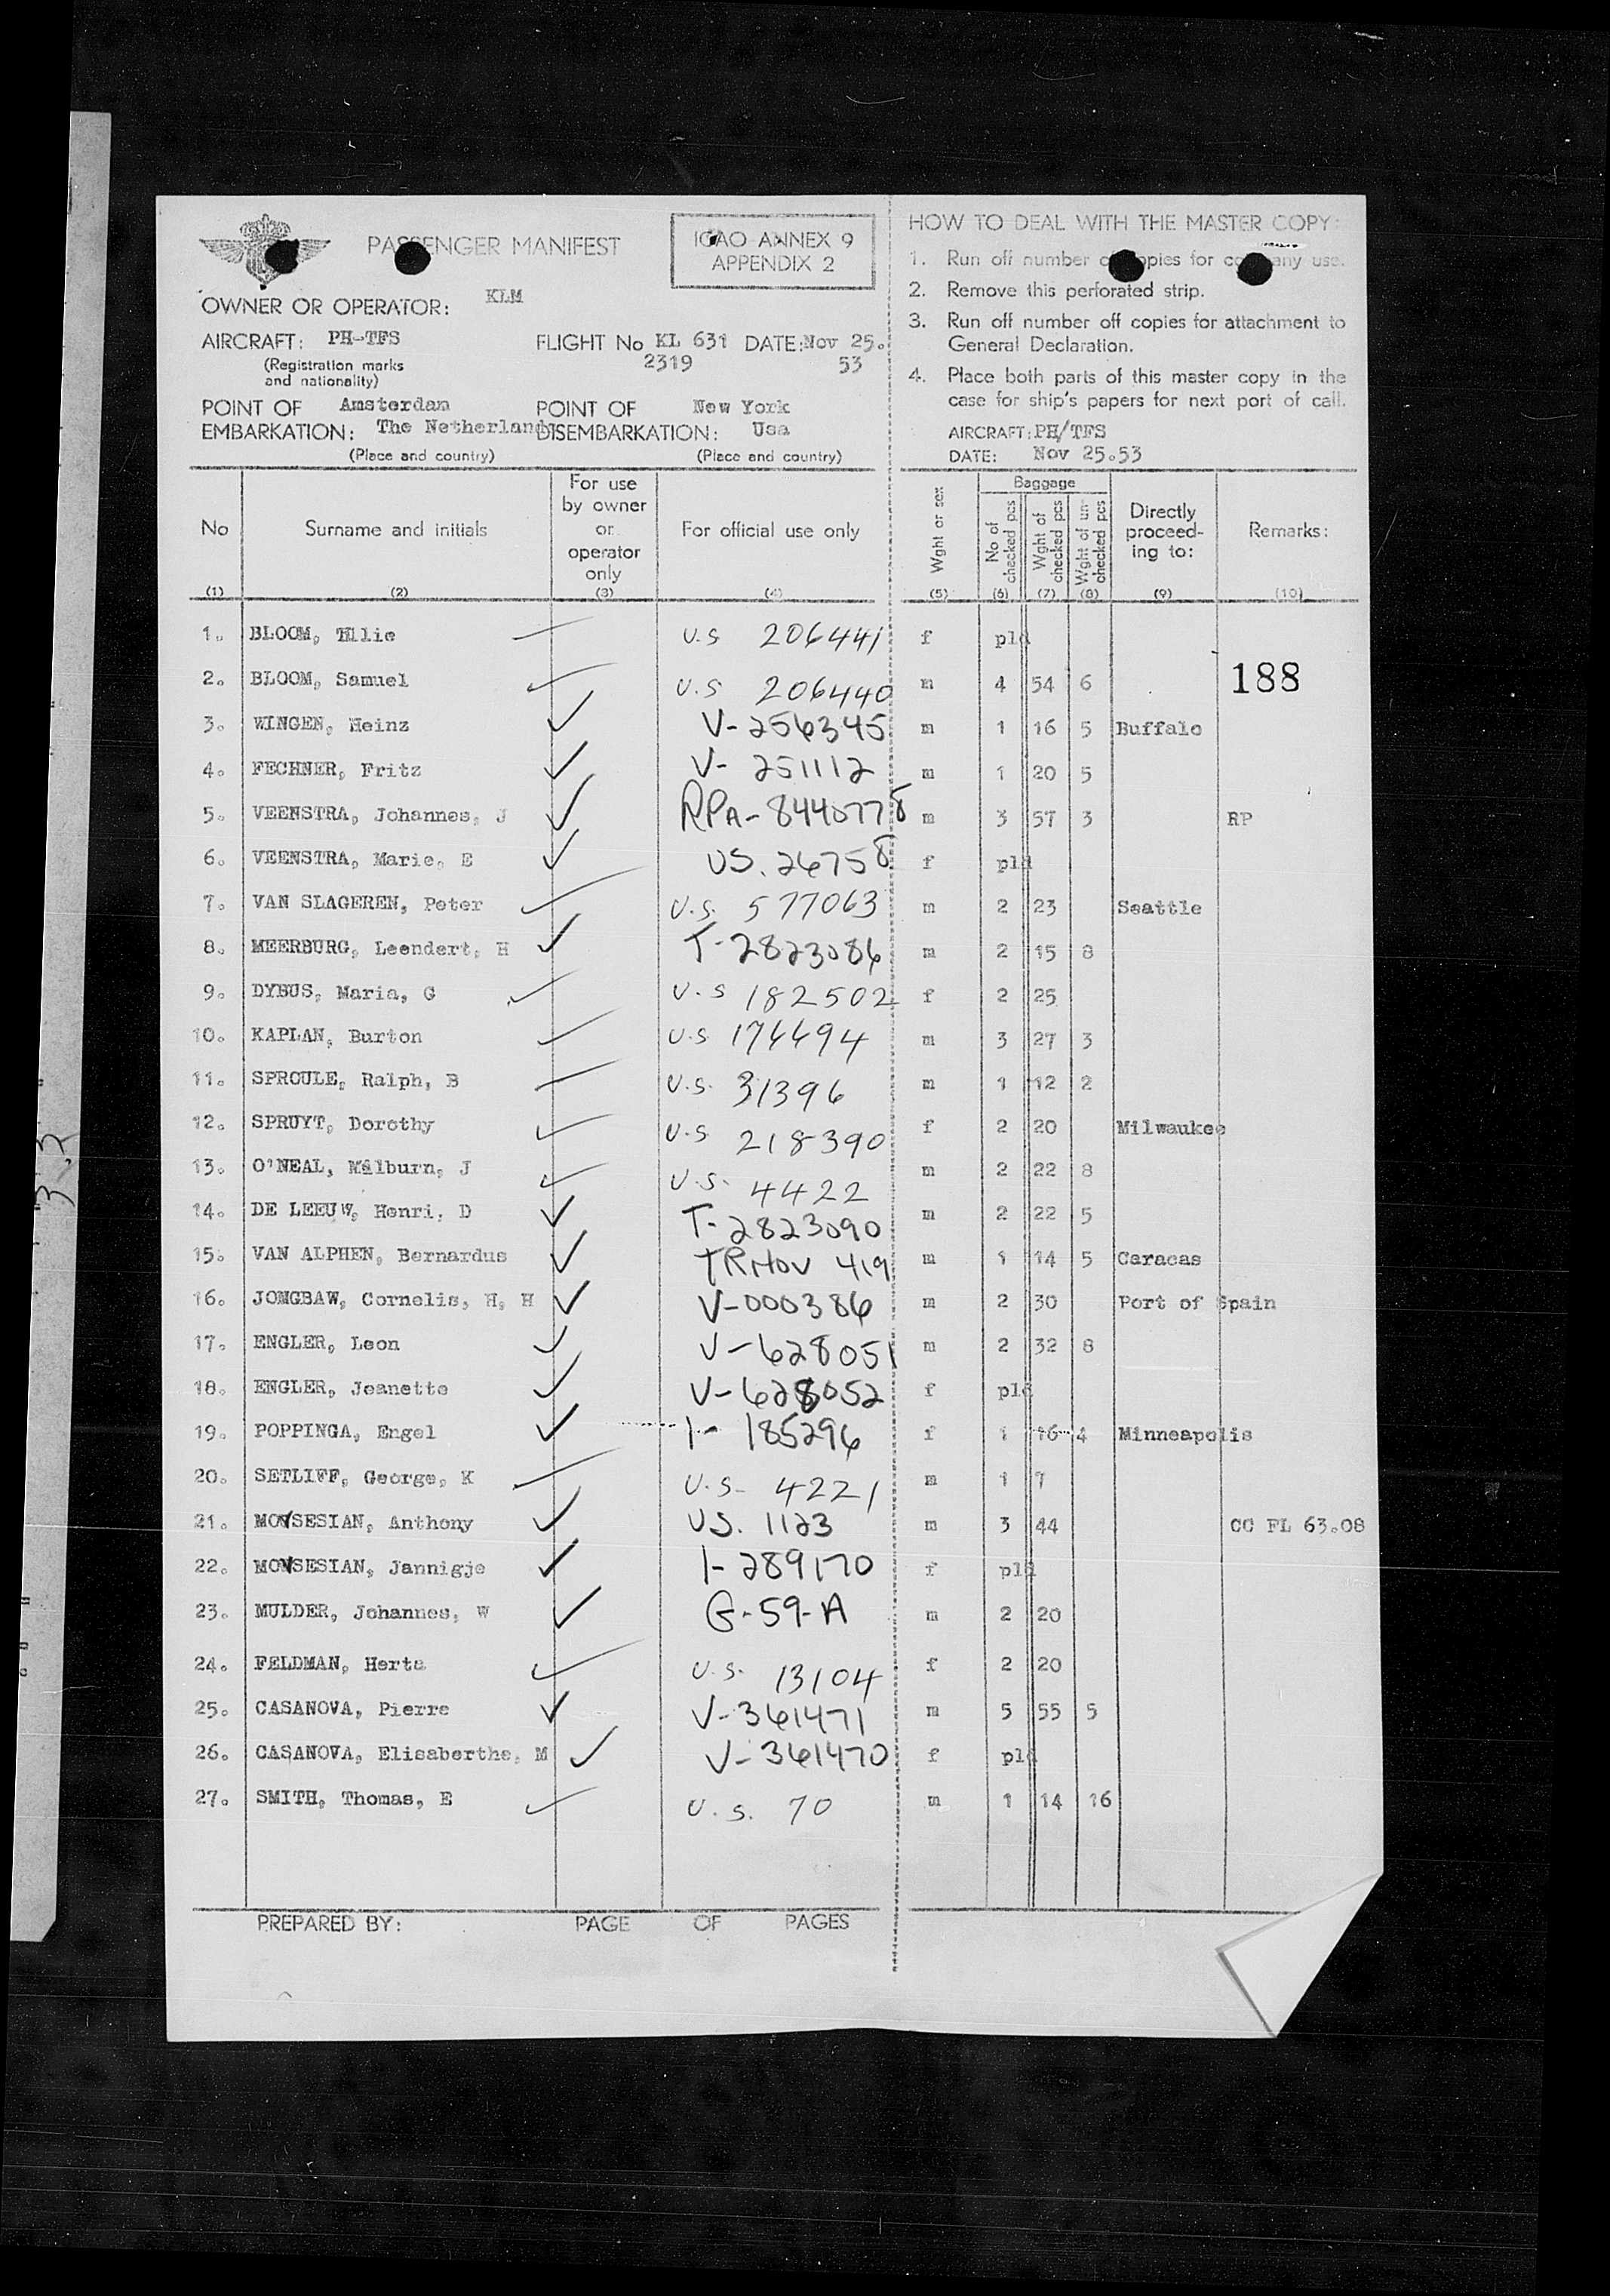 PASSENGER MANIFEST
ICAO ANNEX 9
APPENDIX 2
OWNER OR OPERATOR: KLM
AIRCRAFT: PH-TFS FLIGHT No KL 631 DATE: Nov 25.
(Registration marks 2319 53
and nationality)
POINT OF Amsterdam POINT OF New York
EMBARKATION: The Netherlands DISEMBARKATION: Usa
(Place and country) (Place and country)
HOW TO DEAL WITH THE MASTER COPY:
1. Run off number of copies for company use.
2. Remove this perforated strip.
3. Run off number off copies for attachment to
General Declaration.
4. Place both parts of this master copy in the
case for ship's papers for next port of call.
AIRCRAFT: PH/TFS
DATE: Nov 25.53
No Surname and initials For use by owner or operator only For official use only Wght or sex Baggage No of checked pcs Wght of checked pcs Wght of un-checked pcs Directly proceed-ing to: Remarks:
(1) (2) (3) (4) (5) (6) (7) (8) (9) (10)
1. BLOOM, Tllie U.S 206441 f pld
2. BLOOM, Samuel U.S 206440 m 4 54 6 188
3. WINGEN, Heinz V-256345 m 1 16 5 Buffalo
4. FECHNER, Fritz V-251112 m 1 20 5
5. VEENSTRA, Johannes, J RPA-8440778 m 3 57 3 RP
6. VEENSTRA, Marie, E US. 26758 f pld
7. VAN SLAGEREN, Peter U.S. 577063 m 2 23 Seattle
8. MEERBURG, Leendert, H T-2823086 m 2 15 8
9. DYBUS, Maria, G U.S 182502 f 2 25
10. KAPLAN, Burton U.S. 176694 m 3 27 3
11. SPROULE, Ralph, B U.S. 31396 m 1 12 2
12. SPRUYT, Dorothy U.S 218390 f 2 20 Milwaukee
13. O'NEAL, Milburn, J U.S. 4422 m 2 22 8
14. DE LEEUW, Henri, D T-2823090 m 2 22 5
15. VAN ALPHEN, Bernardus 419 m 1 14 5 Caracas
16. JONGBAW, Cornelis, H, H V-000386 m 2 30 Port of Spain
17. ENGLER, Leon V-628051 m 2 32 8
18. ENGLER, Jeanette V-628052 f pld
19. POPPINGA, Engel I-185296 f 1 16 4 Minneapolis
20. SETLIFF, George, K U.S. 4221 m 1 7
21. MOVSESIAN, Anthony US. 1123 m 3 44 CC FL 63.08
22. MOVSESIAN, Jannigje I-289170 f pld
23. MULDER, Johannes, W G-59-A m 2 20
24. FELDMAN, Herta U.S. 13104 f 2 20
25. CASANOVA, Pierre V-361471 m 5 55 5
26. CASANOVA, Elisaberthe, M V-361470 f pld
27. SMITH, Thomas, E U.S. 70 m 1 14 16
PREPARED BY: PAGE OF PAGES